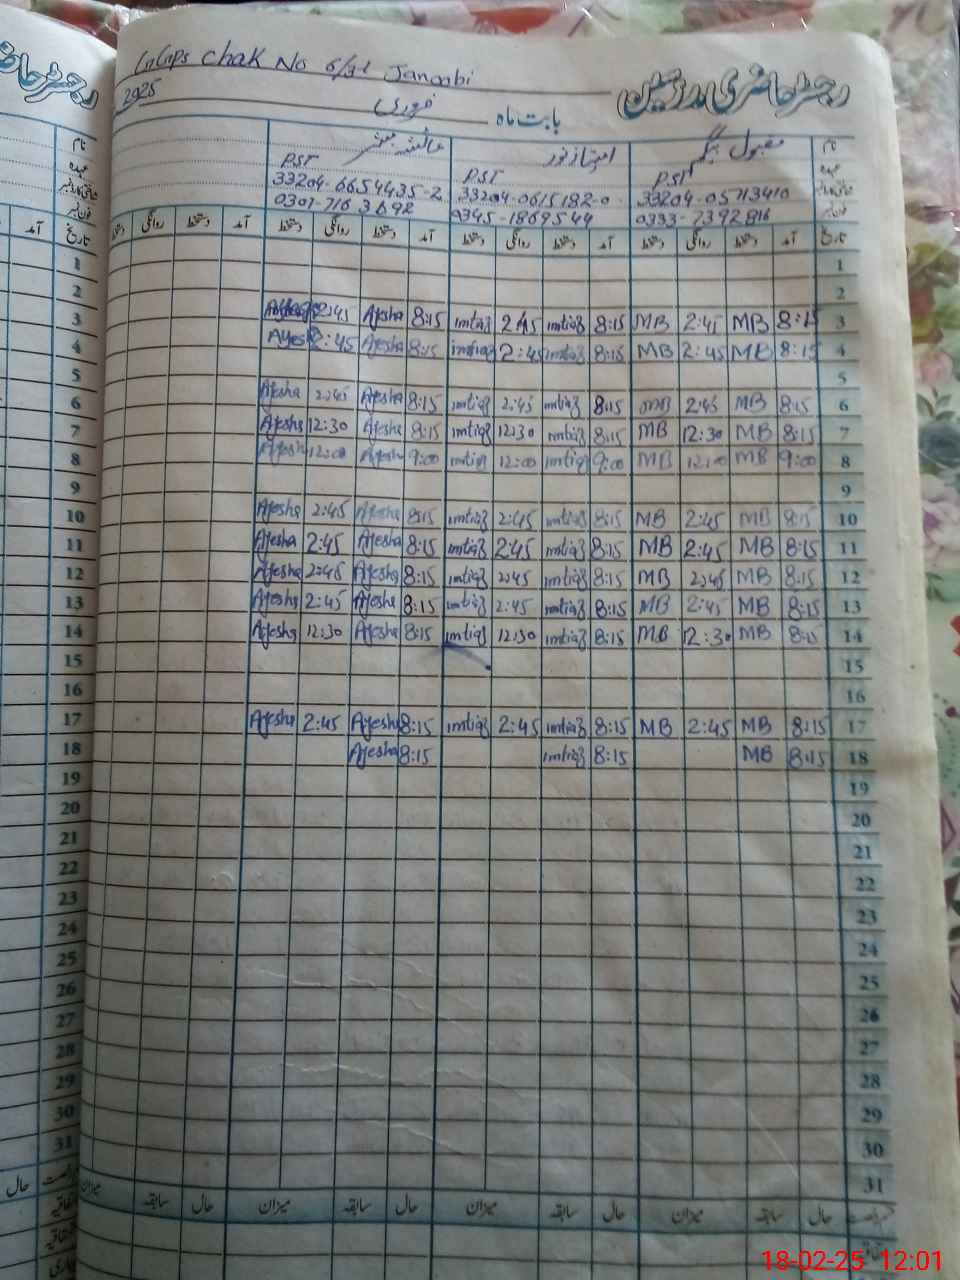 GGPS Chak No 6/gd Janoobi
رجسٹر حاضری مدرسین
2025
بابت ماہ فروری
نام مقبول بیگم امتیاز نور عائشہ مبشر
عہدہ PST PST PST
شناختی کارڈ نمبر 33204-0615182-0 33204-6654435-2
فون نمبر 0333-7392816 0345-1869544 0301-7163692
تاریخ آمد دستخط روانگی دستخط آمد دستخط روانگی دستخط آمد دستخط روانگی دستخط آمد دستخط روانگی دستخط
1
2
3 8:15 MB 2:45 MB 8:15 imtiaz 2:45 imtiaz 8:15 Ayesha 2:45 Ayesha
4 8:15 MB 2:45 MB 8:15 imtiaz 2:45 imtiaz 8:15 Ayesha 2:45 Ayesha
5
6 8:15 MB 2:45 MB 8:15 imtiaz 2:45 imtiaz 8:15 Ayesha 2:45 Ayesha
7 8:15 MB 12:30 MB 8:15 imtiaz 12:30 imtiaz 8:15 Ayesha 12:30 Ayesha
8 9:00 MB 12:00 MB 9:00 imtiaz 12:00 imtiaz 9:00 Ayesha 12:00 Ayesha
9
10 8:15 MB 2:45 MB 8:15 imtiaz 2:45 imtiaz 8:15 Ayesha 2:45 Ayesha
11 8:15 MB 2:45 MB 8:15 imtiaz 2:45 imtiaz 8:15 Ayesha 2:45 Ayesha
12 8:15 MB 2:45 MB 8:15 imtiaz 2:45 imtiaz 8:15 Ayesha 2:45 Ayesha
13 8:15 MB 2:45 MB 8:15 imtiaz 2:45 imtiaz 8:15 Ayesha 2:45 Ayesha
14 8:15 MB 12:30 MB 8:15 imtiaz 12:30 imtiaz 8:15 Ayesha 12:30 Ayesha
15
16
17 8:15 MB 2:45 MB 8:15 imtiaz 2:45 imtiaz 8:15 Ayesha 2:45 Ayesha
18 8:15 MB 8:15 imtiaz 8:15 Ayesha
19
20
21
22
23
24
25
26
27
28
29
30
31
حال سابقہ میزان حال سابقہ میزان حال سابقہ میزان حال سابقہ میزان
18-02-25 12:01